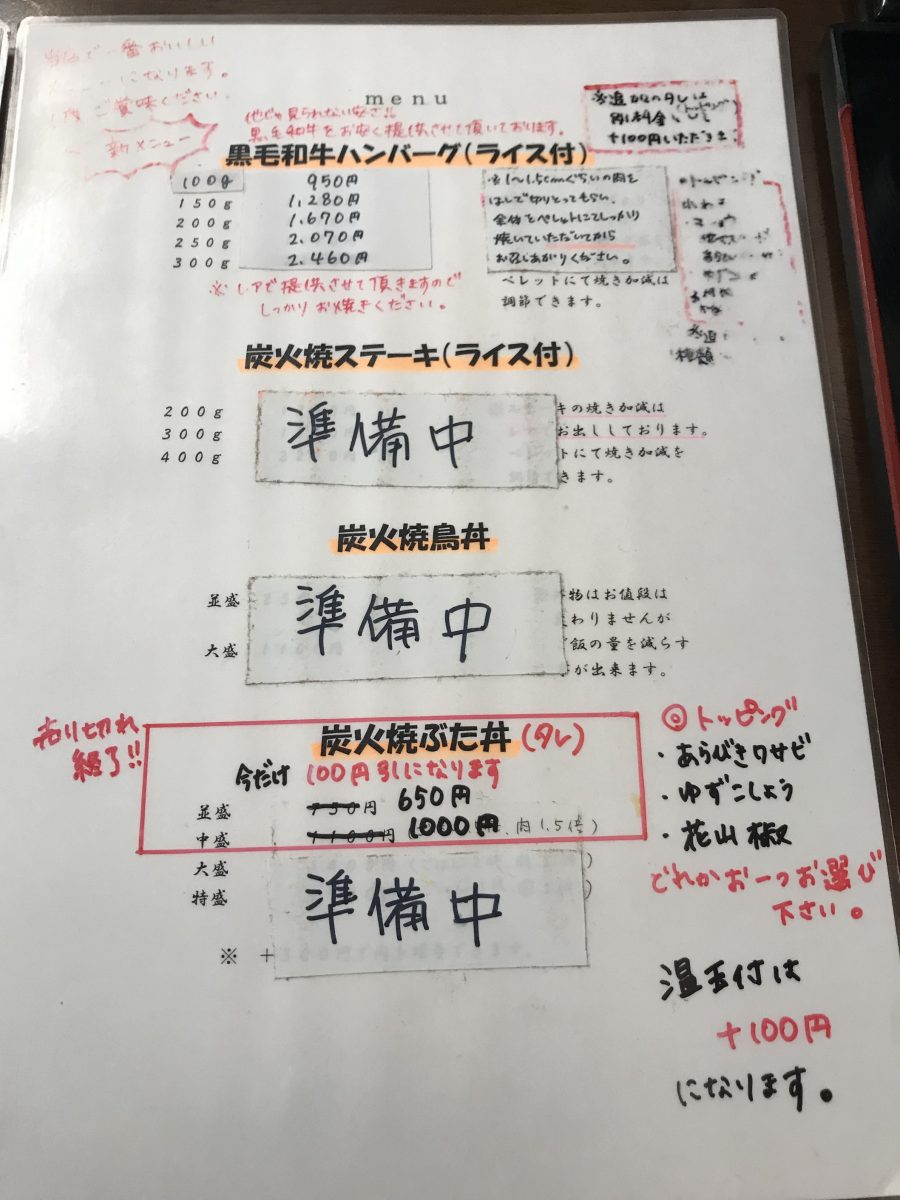 当店で一番おいしい
になります。
ご賞味ください。
新メニュー
menu
他じゃ見られない安さ!!
黒毛和牛をお安く提供させて頂いております。
※追加のタレは
別料金
+100円いただきま
黒毛和牛ハンバーグ(ライス付)
100g 950円
150g 1,280円
200g 1.670円
250g 2.070円
300g 2.460円
※1〜1.5cmぐらいの肉を
はしで切りとってもらい、
全体をペレットにてしっかり
焼いていただいてから
お召しあがりください。
ペレットにて焼き加減は
調節できます。
※レアで提供させて頂きますので
しっかりお焼きください。
種類
炭火焼ステーキ(ライス付)
200g
300g
400g
準備中
キの焼き加減は
お出ししております。
トにて焼き加減を
きます。
炭火焼鳥丼
並盛
大盛
準備中
物はお値段は
わりませんが
飯の量を減らす
が出来ます。
売り切れ
終了!!
炭火焼ぶた丼(タレ)
今だけ 100円引になります
並盛 750円 650円
中盛 1100円 1000円 、肉1.5倍)
大盛
特盛
準備中
※ +
◎トッピング
・あらびきワサビ
・ゆずこしょう
・花山椒
どれかお一つお選び
下さい。
温玉付は
+100円
になります。